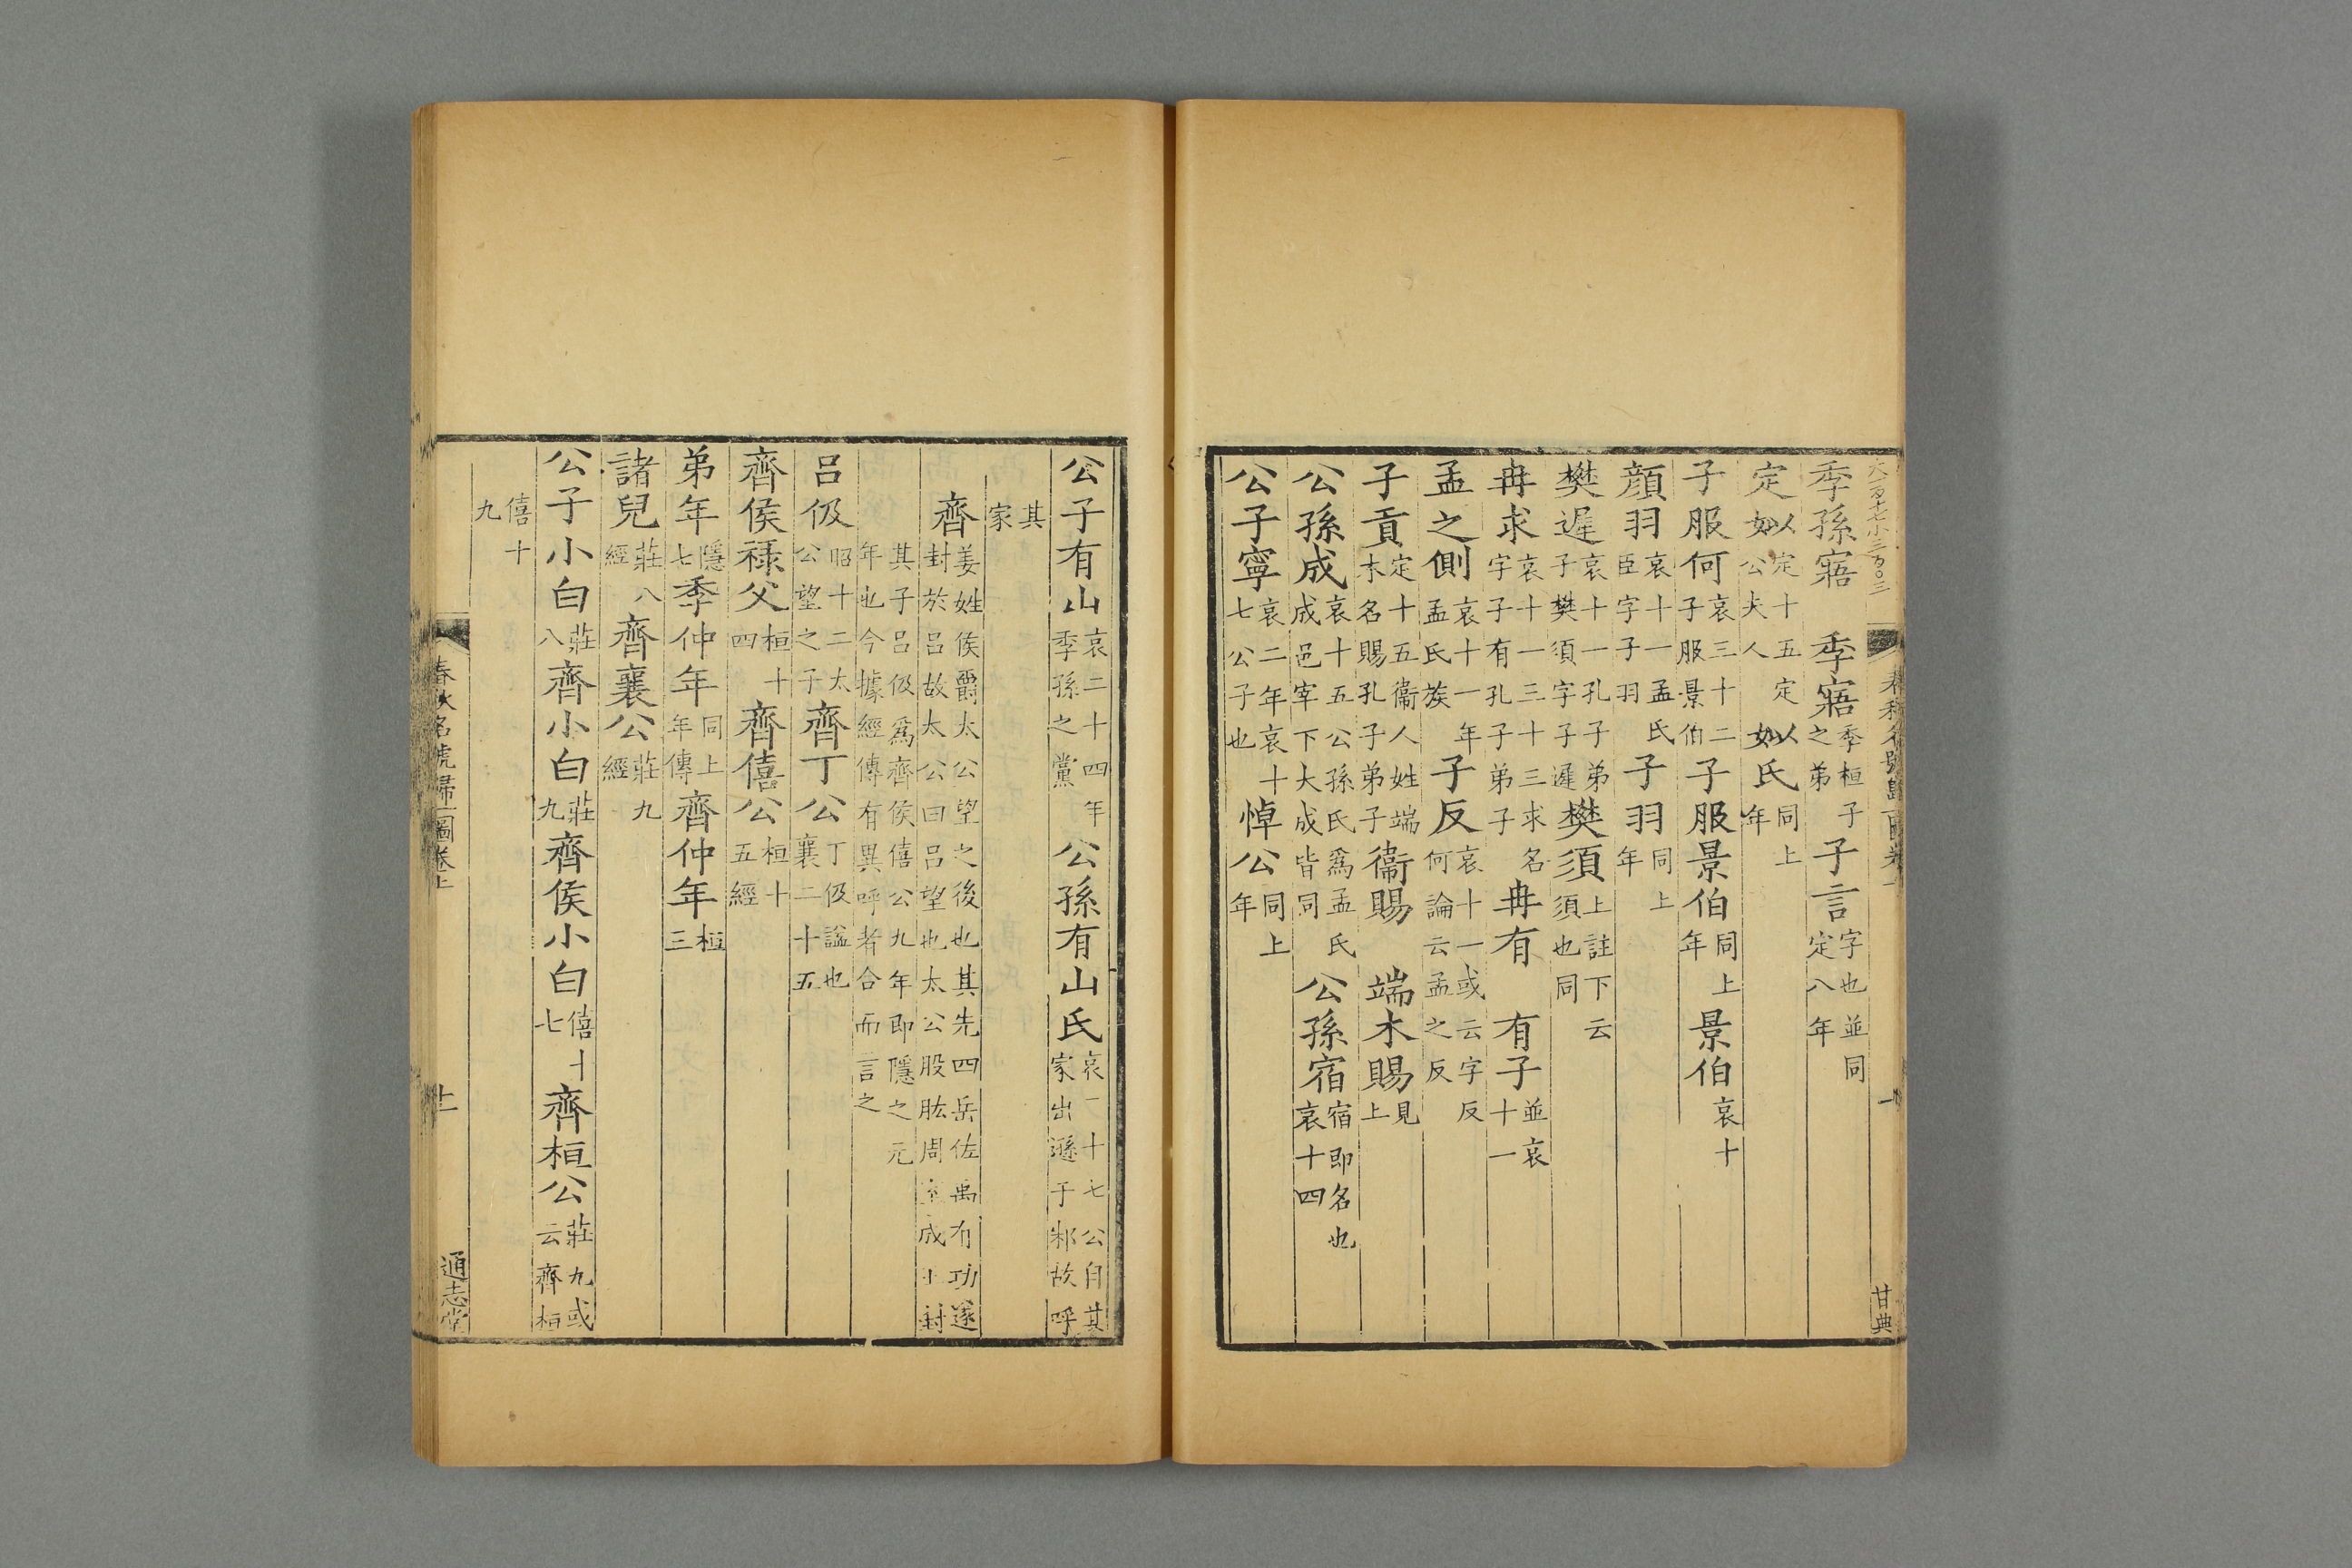 季孫寤　季寤季桓子之弟子言字也並同定八年
定姒定十五定公夫人姒氏同上年
子服何哀三十二子服景伯子服景伯同上年景伯哀十
顔羽哀十一孟氏臣字子羽子羽同上年
樊遲哀十一孔子弟子樊須字子遲樊須上註下云須也同
冉求哀十一三十三求名字子有孔子弟子冉有　有子並哀十一
孟之側哀十一年孟氏族子反哀十一或云字反何論云孟之反
子貢定十五衞人姓端木名賜孔子弟子衞賜　端木賜見上
公孫成哀十五公孫氏爲孟氏成邑宰下大成皆同公孫宿宿即名也哀十四
公子寧哀二年哀十七公子也悼公同上年
公子有山哀二十四年季孫之黨公孫有山氏哀二十七公自其家出遜于邾故呼
其家
齊姜姓侯爵太公望之後也其先四岳佐禹有功遂封於呂故太公曰呂望也太公股肱周室成王封
其子呂伋爲齊侯僖公九年即隱之元年也今據經傳有異呼者合而言之
呂伋昭十二太公望之子齊丁公丁伋諡也襄二十五
齊侯祿父桓十四齊僖公桓十五經
弟年隱七季仲年同上年傳齊仲年桓三
諸兒莊八經齊襄公莊九經
公子小白莊八齊小白莊九齊侯小白僖十七齊桓公莊九或云齊桓
僖十九
春秋名號歸一圖卷上
通志堂
甘典